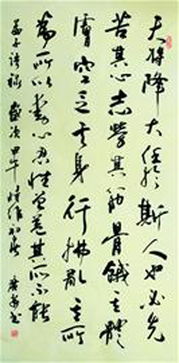 天将降大任於斯人也必先
苦其心志勞其筋骨餓其體
膚空乏其身行拂亂其所
為所以動心忍性曾益其所不能
孟子语録 歲次甲午